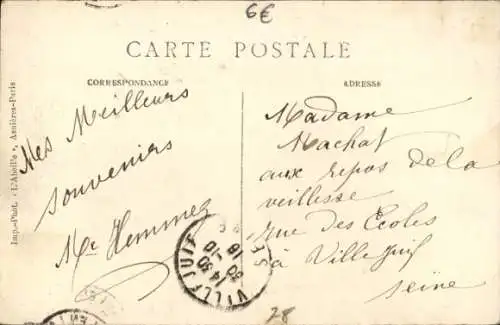 6€
CARTE POSTALE
CORRESPONDANCE
ADRESSE
Imp.-Phot. « L'Abeille », Asnières-Paris
Mes Meilleurs
souvenirs
Me Hemmer
Madame
Machat
aux repos de la
veillesse
rue des Ecoles
à Villejuif
Seine
VILLEJUIF
14 30
20-10
28